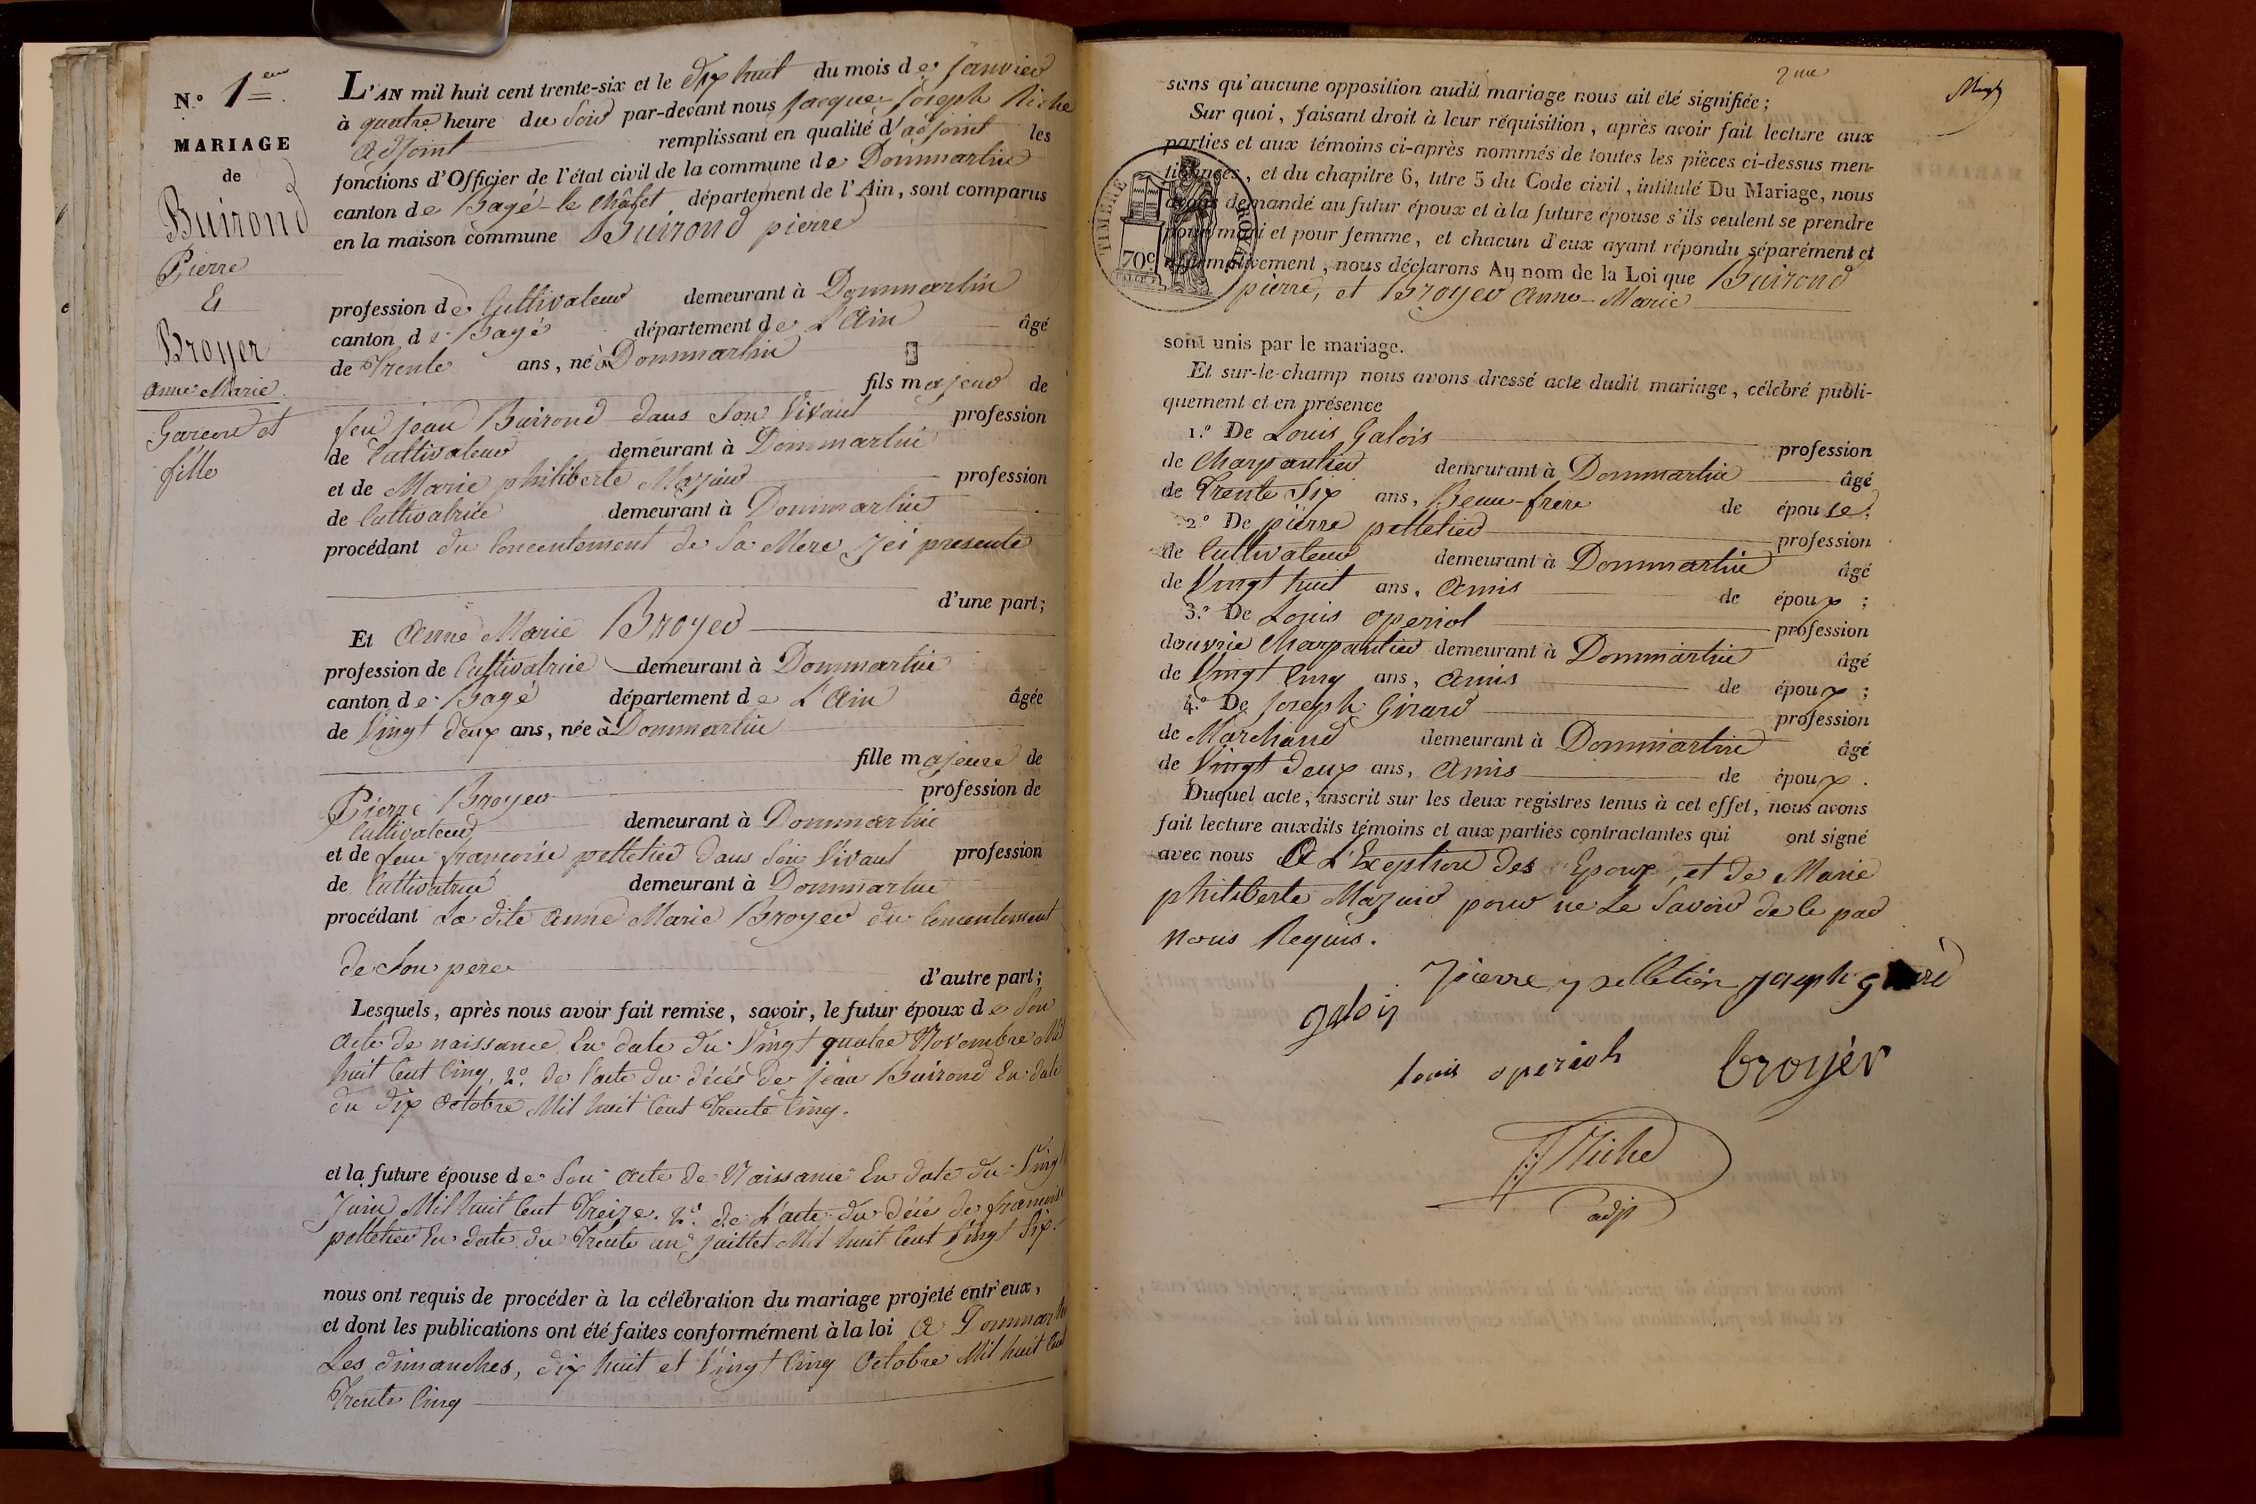 N.o 1ere
MARIAGE
de
Buirond
Pierre
Et
Broyer
Anne Marie
Garcon et
fille
L'AN mil huit cent trente-six et le dix huit du mois de janvier
à quatre heure du Soir par-devant nous Jacque Joseph Riche
adjoint remplissant en qualité d'adjoint les
fonctions d'Officier de l'état civil de la commune de Dommartin
canton de Bagé-le Châtel département de l'Ain, sont comparus
en la maison commune Buirond pierre
profession de Cultivateur demeurant à Dommartin
canton de Bagé département de L'Ain âgé
de Trente ans, né à Dommartin
fils majeur de
feu jean Buirond dans Son Vivant profession
de Cultivateur demeurant à Dommartin
et de Marie philiberte Mazuir profession
de Cultivatrice demeurant à Dommartin
procédant du Concentement de Sa Mere ici presente
d'une part;
Et Anne Marie Broyer
profession de Cultivatrice demeurant à Dommartin
canton de Bagé département de L'Ain âgée
de Vingt deux ans, née à Dommartin
fille majeure de
Pierre Broyer profession de
Cultivateur demeurant à Dommartin
et de feue francoise pelletier dans Son Vivant profession
de Cultivatrice demeurant à Dommartin
procédant La dite Anne Marie Broyer du Concentement
de Son pere d'autre part;
Lesquels, après nous avoir fait remise, savoir, le futur époux de Son
acte de naissance En date du Vingt quatre Novembre Mil
huit Cent Cinq, 2o. de l'acte du décés de jean Buirond En date
du dix Octobre Mil huit Cent Trente Cinq.
et la future épouse de Son acte de Naissance En date du Vingt
Juin Mil huit Cent Treize. 2o. de L'acte du décés de francoise
pelletier En date du Trente un juillet Mil huit Cent Vingt Six.
nous ont requis de procéder à la célébration du mariage projeté entr'eux,
et dont les publications ont été faites conformément à la loi A Dommartin
Les dimanches, dix huit et Vingt Cinq Octobre Mil huit Cent
Trente Cinq
2me
sans qu'aucune opposition audit mariage nous ait été signifiée;
Sur quoi, faisant droit à leur réquisition, après avoir fait lecture aux
parties et aux témoins ci-après nommés de toutes les pièces ci-dessus men-
tionnées, et du chapitre 6, titre 5 du Code civil, intitulé Du Mariage, nous
avons demandé au futur époux et à la future épouse s'ils veulent se prendre
pour mari et pour femme, et chacun d'eux ayant répondu séparément et
affirmativement, nous déclarons Au nom de la Loi que Buirond
pierre, et Broyer Anne-Marie
TIMBRE ROYAL
70c
sont unis par le mariage.
Et sur-le-champ nous avons dressé acte dudit mariage, célébré publi-
quement et en présence
1.o De Louis Galois profession
de Charpantier demeurant à Dommartin âgé
de Trente Six ans, Beau-frere de épouse;
2.o De pierre pelletier profession
de Cultivateur demeurant à Dommartin âgé
de Vingt huit ans, Amis de époux;
3.o De Louis operiol profession
douvrie Charpantier demeurant à Dommartin âgé
de Vingt Cinq ans, Amis de époux;
4.o De Joseph Girard profession
de Marchand demeurant à Dommartin âgé
de Vingt deux ans, Amis de époux.
Duquel acte, inscrit sur les deux registres tenus à cet effet, nous avons
fait lecture auxdits témoins et aux parties contractantes qui ont signé
avec nous A L'Exeption des Epoux, et de Marie
philiberte Mazuir pour ne Le Savoir de Ce par
nous Requis.
pierre pelletier joseph girard
galois
louis operiol broyer
Riche
adjt